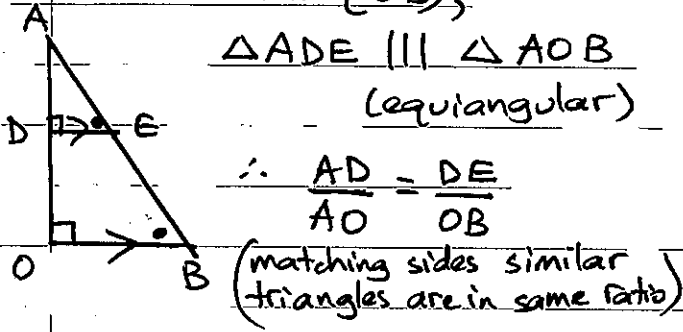 A
△ADE ||| △AOB
(equiangular)
D E
∴ AD/AO = DE/OB
O B
(matching sides similar
triangles are in same ratio)